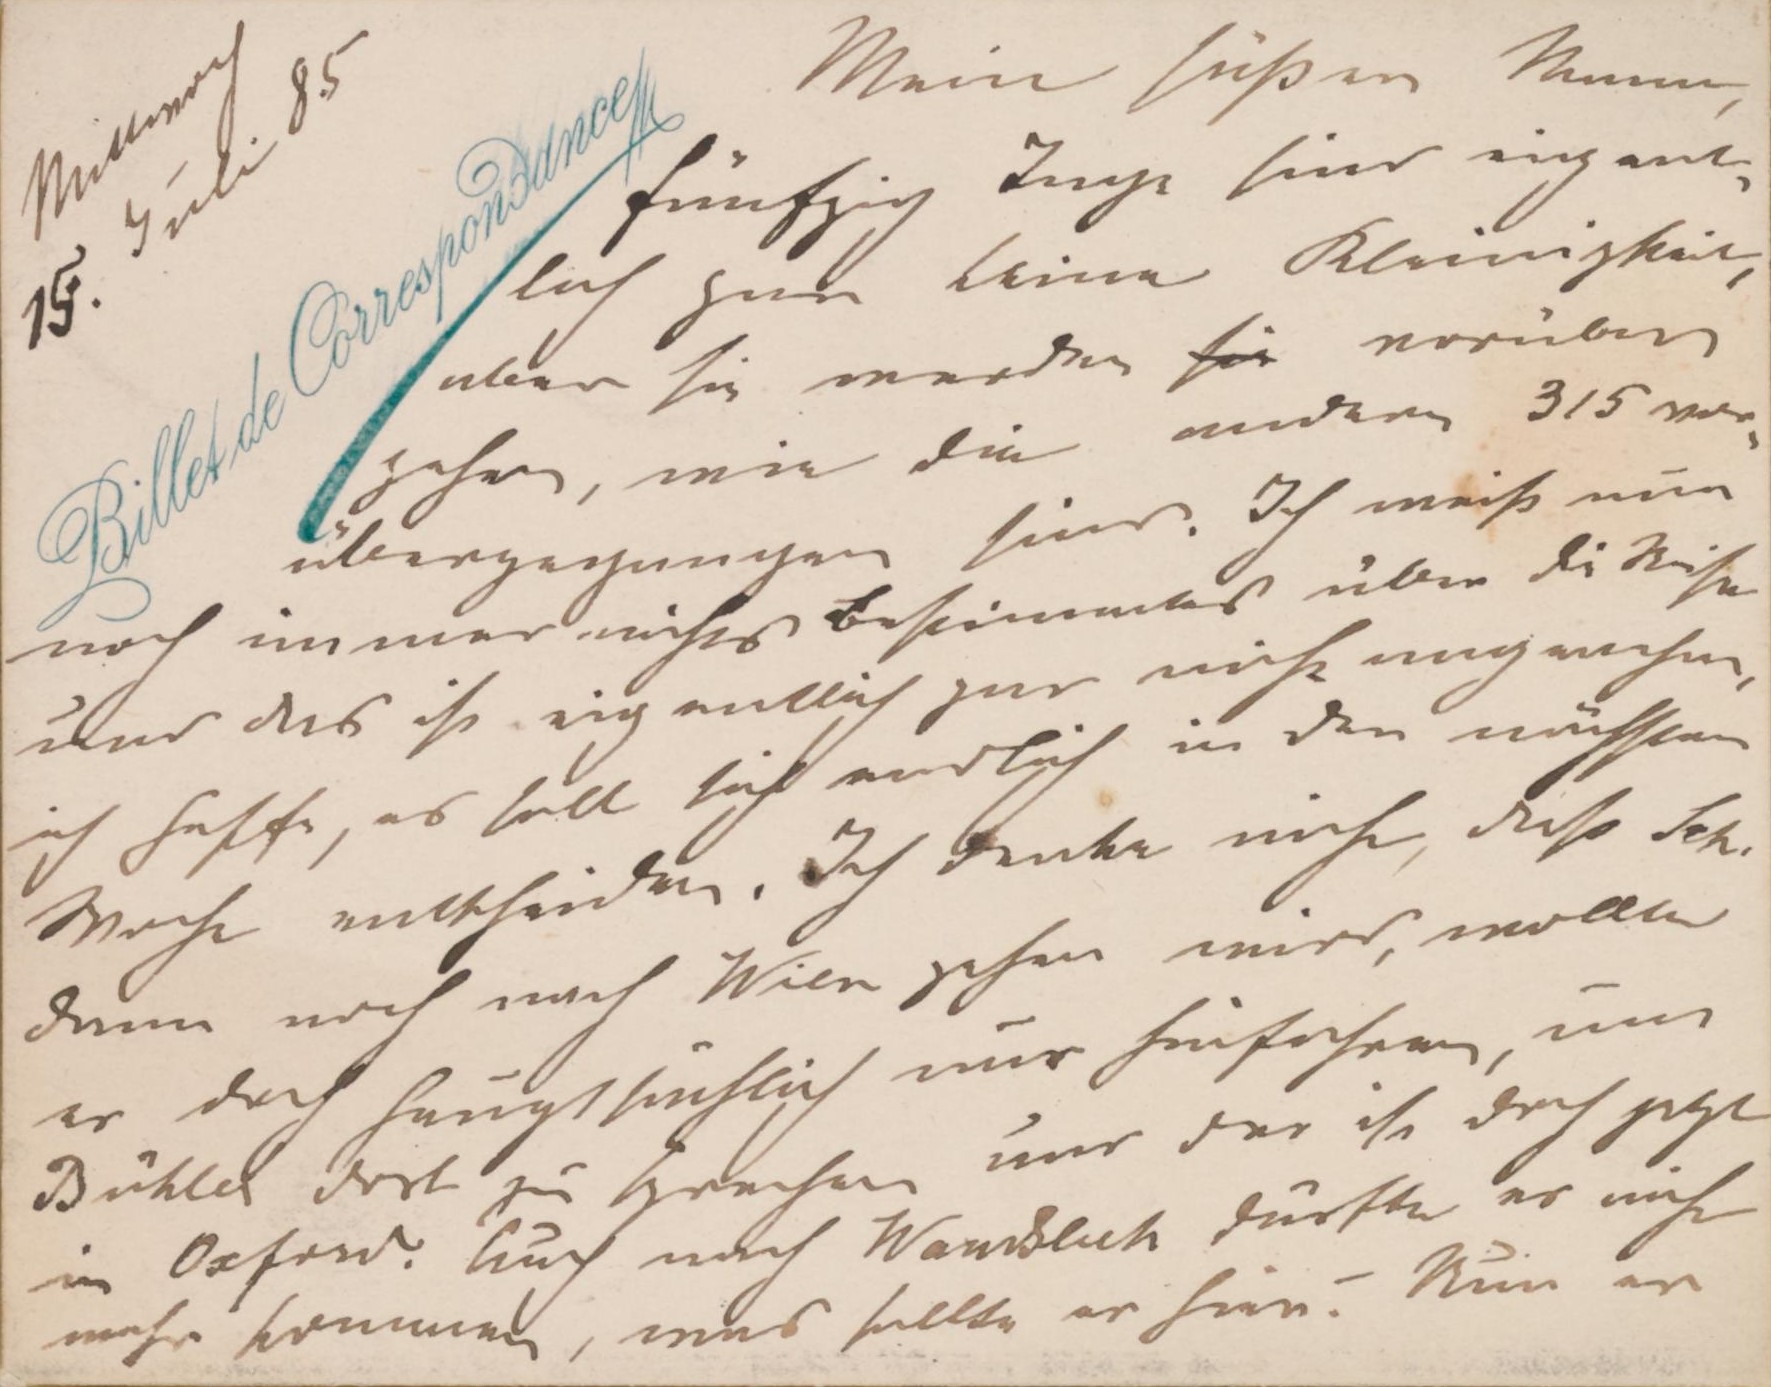 Mittwoch
15. Juli 85
Billet de Correspondance
Mein süßer Mann,
fünfzig Tage sind eigent-
lich gar keine Kleinigkeit,
aber sie werden sie vorüber
gehen, wie die andern 315 vor-
übergegangen sind. Ich weiß nun
noch immer nichts bestimmtes über die Reise
und das ist eigentlich gar nicht angenehm,
ich hoffe, es soll sich endlich in der nächsten
Woche entscheiden. Ich denke nicht, daß Sch.
dann noch nach Wien gehen wird, wollte
er doch hauptsächlich nur hinfahren, um
Bühler dort zu sprechen und der ist doch jetzt
in Oxford. Auch nach Wandsbek dürfte er nicht
mehr kommen, was sollte er hier? Nun er